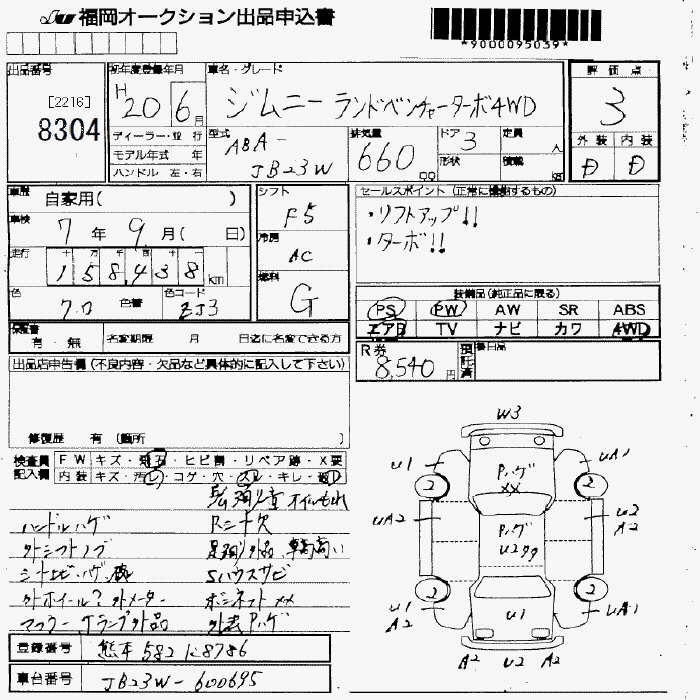 福岡オークション出品申込書
*9000095039*
出品番号
[2216]
8304
初年度登録年月
H 20 6月
ディーラー・並行
モデル年式 年
ハンドル 左・右
車名・グレード
ジムニー ランドベンチャーターボ4WD
型式
ABA-
JB23W
排気量
660 cc
ドア 3
形状
定員 人
積載 kg
評価点
3
外装 内装
D D
車歴 自家用( )
車検 7年 9月( 日)
走行 十 万 千 百 十 一
158,438 km
色 色替 色コード
ZJ3
シフト
F5
冷房
AC
燃料
G
セールスポイント(正常に機能するもの)
・リフトアップ!!
・ターボ!!
装備品(純正品に限る)
PS PW AW SR ABS
エアB TV ナビ カワ 4WD
保証書
有・無 名変期限 月 日迄に名変できる方
R券
8,540円
預託済
後日品
出品店申告欄(不良内容・欠品など具体的に記入して下さい)
修復歴 有(箇所 )
検査員記入欄
FW キズ・飛石・ヒビ割・リペア跡・X要
内装 キズ・汚レ・コゲ・穴・スレ・キレ・破D
オイルもれ
ハンドルハゲ
外シフトノブ
車高高い
外ホイール? 外メーター
Sハウスサビ
ボンネットXX
マフラー 外品
登録番号 熊本 582 に 8786
車台番号 JB23W-600695
W3
U1 UA1
2 2
Pハゲ
XX
UA2 U2
A2
Pハゲ
U2
2 2
U1 UA1
A2
U1
A2 U2 A2